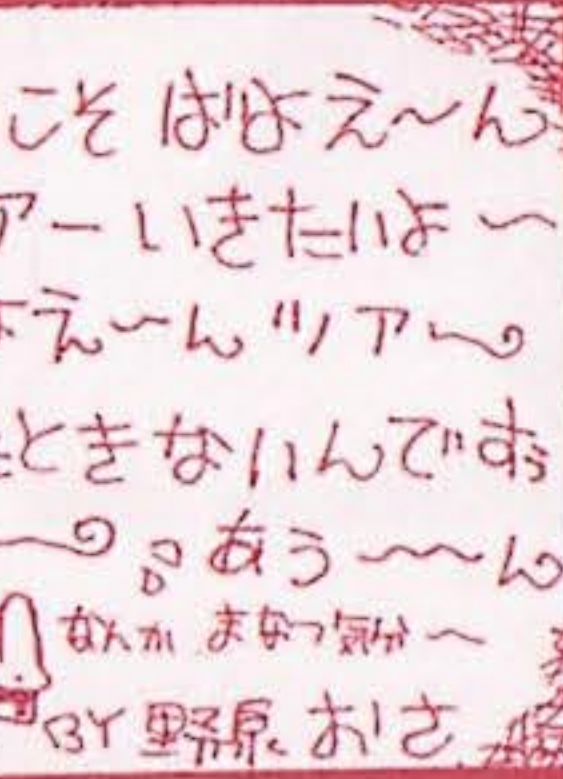 こそ ばびよえ〜ん
アーいきたいよ〜
よえ〜んツアー〜
ときないんですぅ
〜 あう〜〜ん
なんか まなつ気分〜
BY 野原おさ